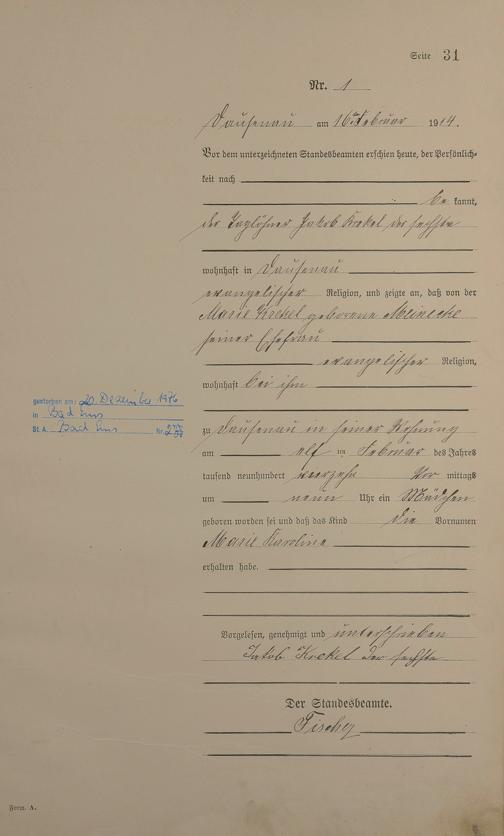 Seite 31
Nr. 1
Dausenau am 16ten Februar 1914.
Vor dem unterzeichneten Standesbeamten erschien heute, der Persönlich-
keit nach
be kannt,
der Taglöhner Jakob Krekel der sechste
wohnhaft in Dausenau
evangelischer Religion, und zeigte an, daß von der
Marie Krekel geborene Meinecke
seiner Ehefrau
evangelischer Religion,
wohnhaft bei ihm
zu Dausenau in seiner Wohnung
am elf ten Februar des Jahres
tausend neunhundert vierzehn Vor mittags
um neun Uhr ein Mädchen
geboren worden sei und daß das Kind die Vornamen
Marie Karoline
erhalten habe.
Vorgelesen, genehmigt und unterschrieben
Jakob Krekel der sechste
Der Standesbeamte.
gestorben am: 20 Dezember 1976
in Bad Ems
St. A. Bad Ems Nr.
Form. A.